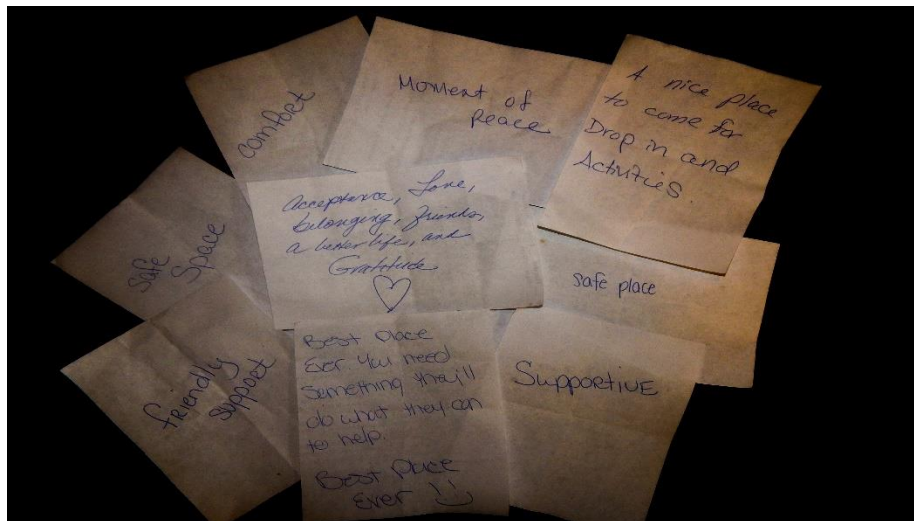 Comfort
Moment of
Peace
A nice place
to come for
Drop in and
Activities
Safe
Space
Acceptance, Love,
belonging, friends,
a better life, and
Gratitude
safe place
friendly
support
Best Place
Ever You need
Something they'll
do what they can
to help.
Best Place
Ever
Supportive